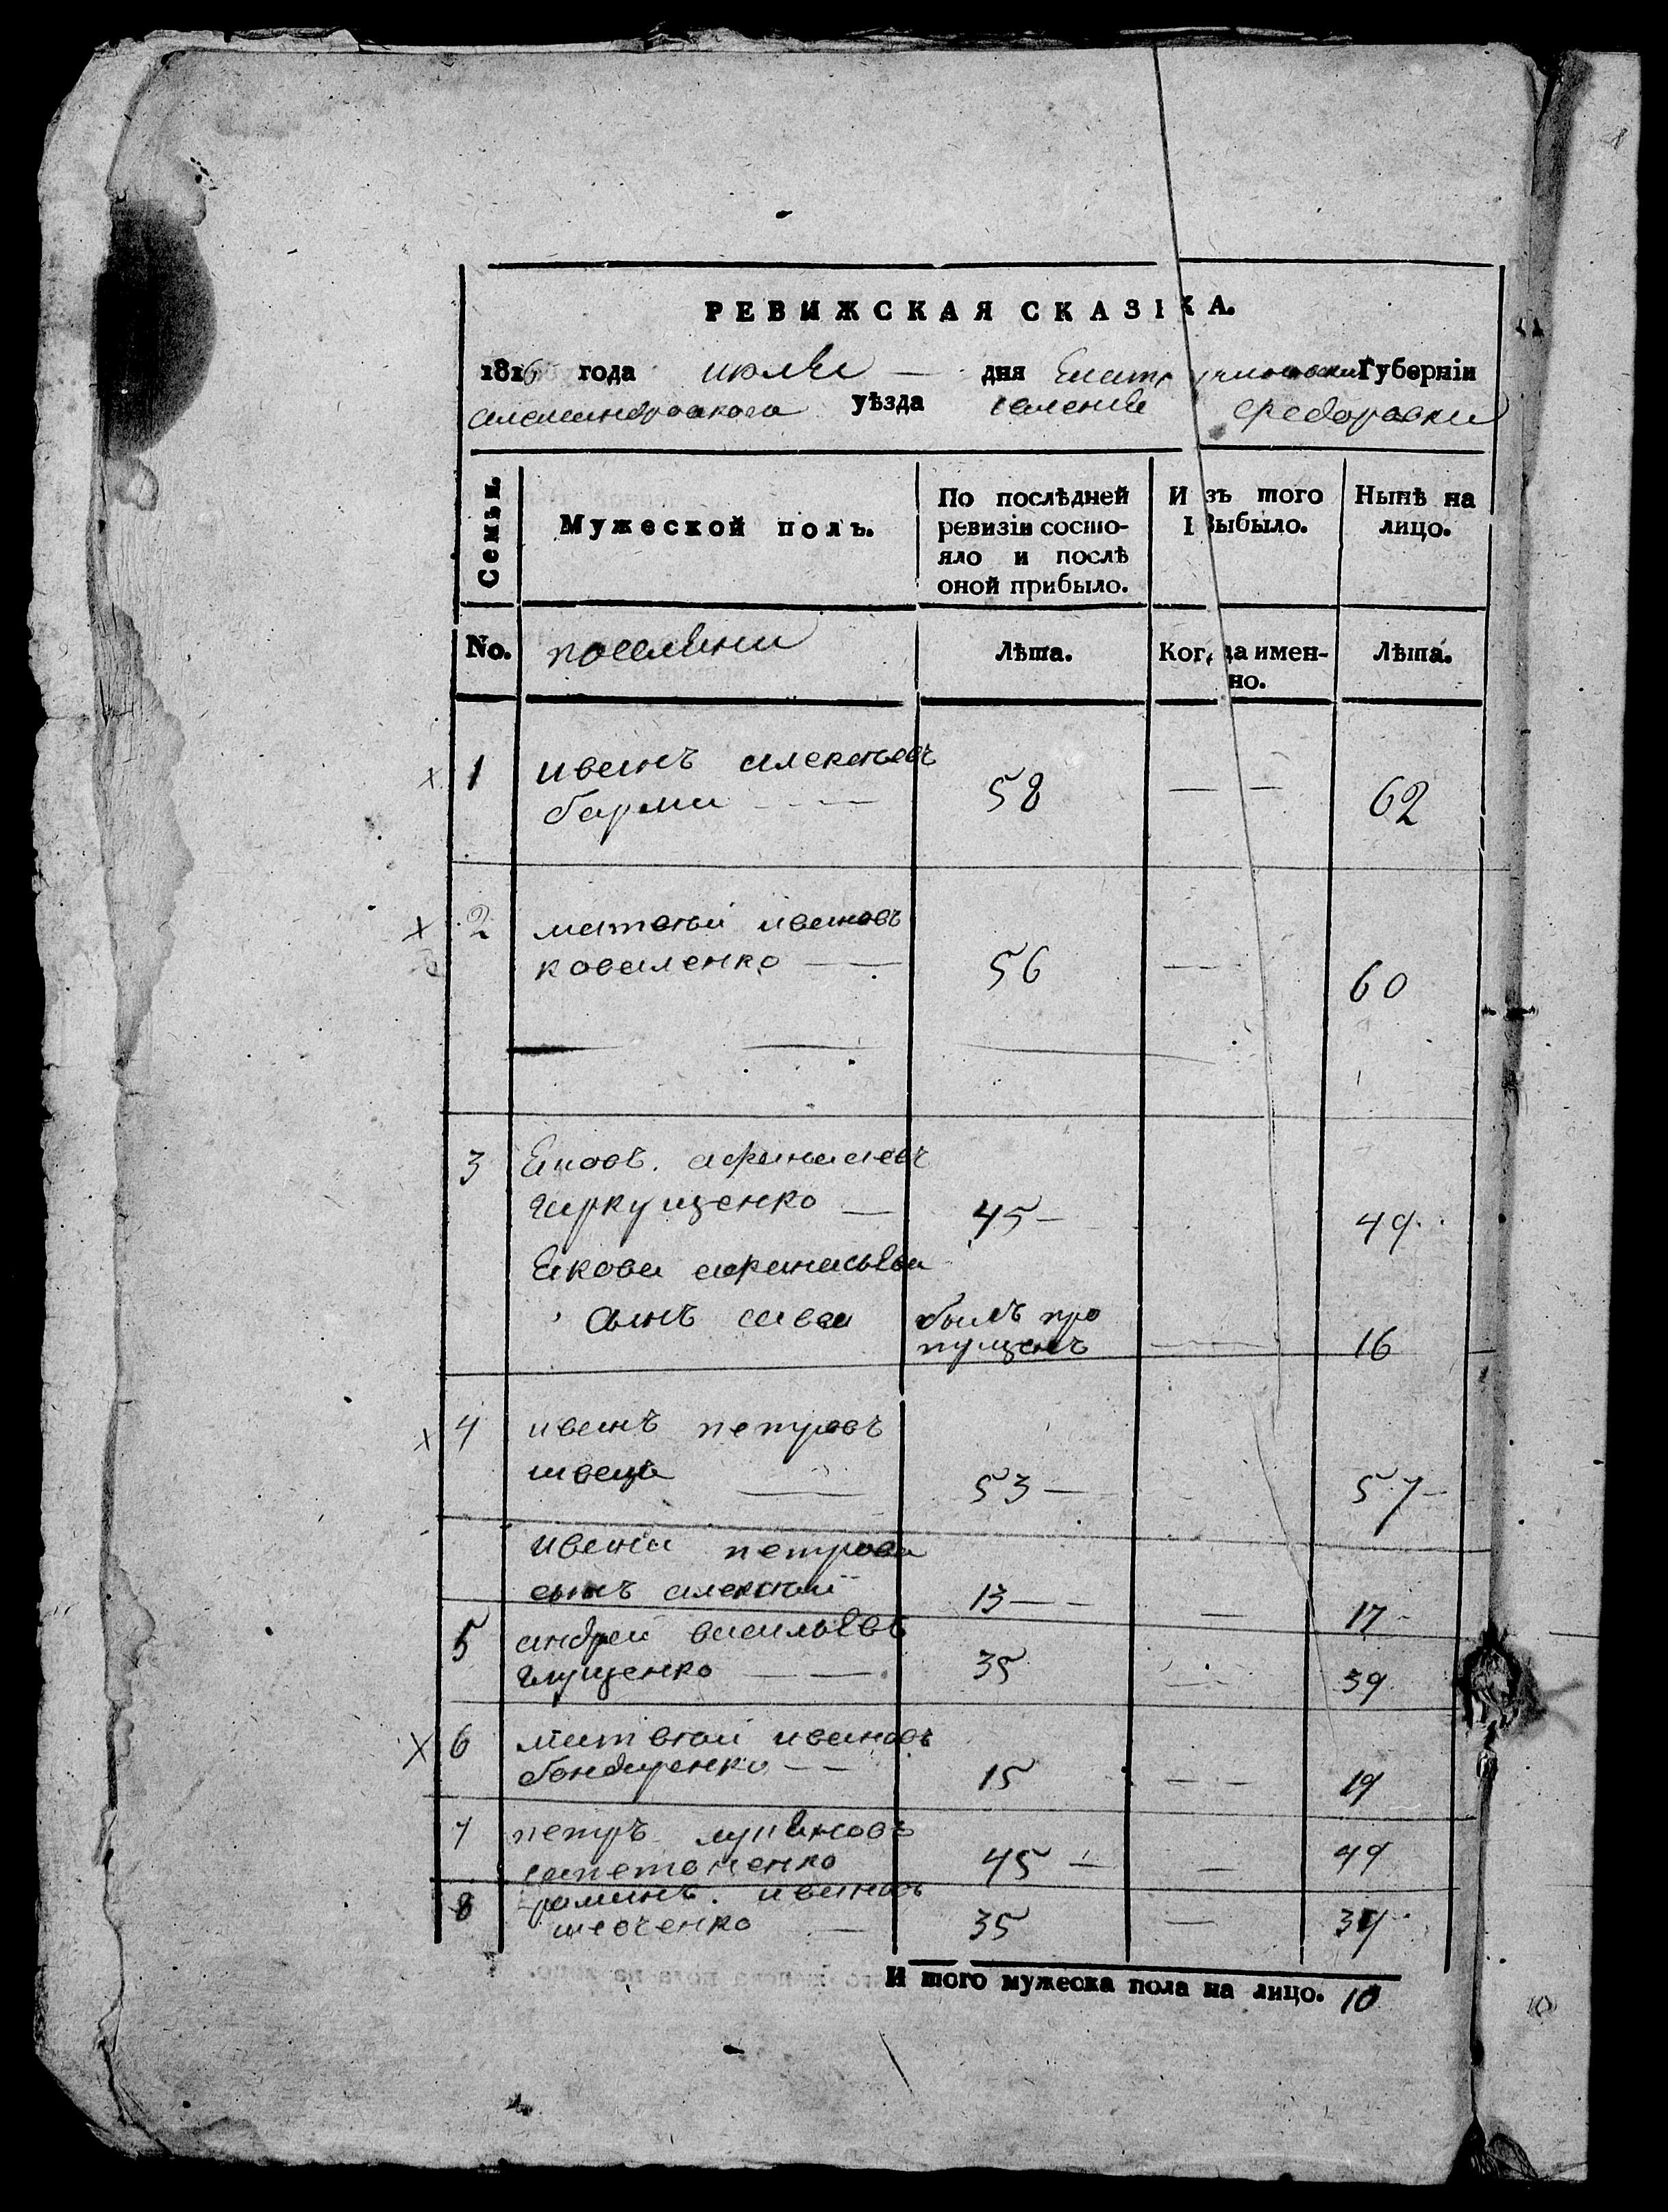 РЕВИЖСКАЯ СКАЗКА.
1816 года июля — дня Екатеринославской Губерніи
александровского уѣзда селения Федоровки
Семьи.
Мужеской полъ.
По послѣдней ревизіи состо-
яло и послѣ
оной прибыло.
Изъ того
выбыло.
Нынѣ на
лицо.
No.
поселяни
Лѣта.
Когда имен-
но.
Лѣта.
1 иванъ алексѣевъ
барма 58 — — 62
2 матвѣй ивановъ
коваленко — 56 — — 60
3 Яковъ афанасиевъ
— 45 — 49
Якова афанасьева
сынъ сава былъ про
пущенъ — 16
4 иванъ петровъ
швець — 53 — 57 —
ивана петрова
сынъ алексѣй 13 — — — 17
5 андрей васильевъ
глущенко — — 35 — 39
6 матвѣй ивановъ
бондаренко — — 15 — — 19
7 петръ
45 — — 49
8 романъ ивановъ
шевченко — 35 — 39
И того мужеска пола на лицо. 10